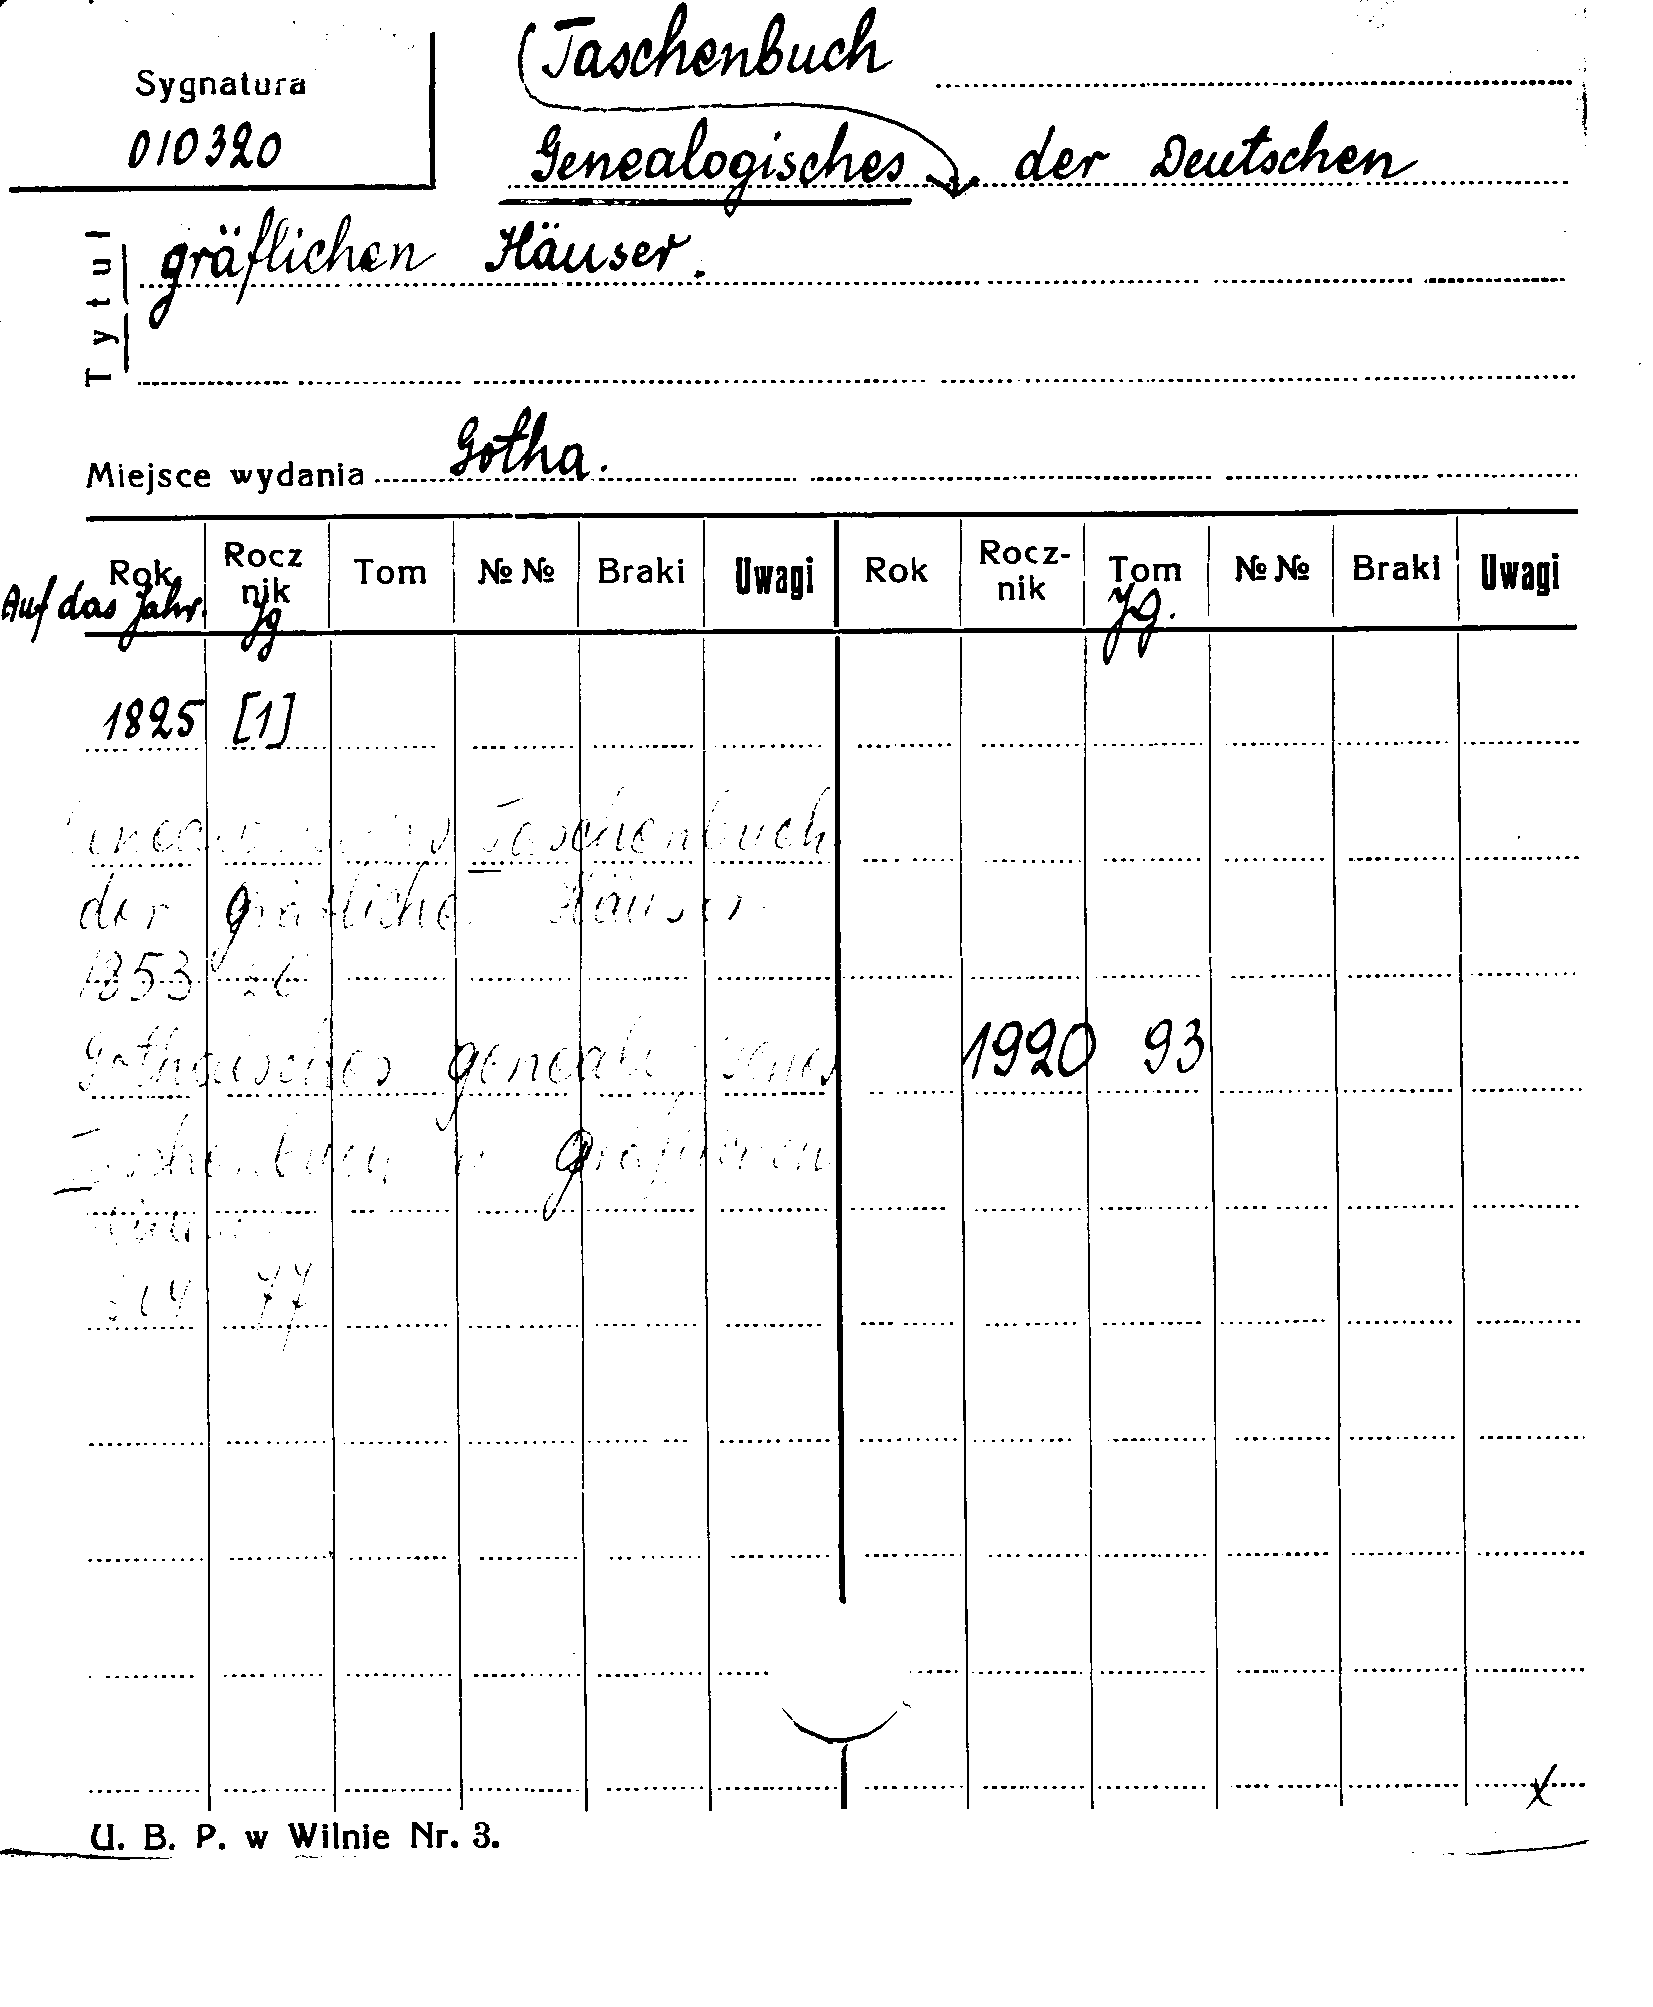 Sygnatura
010320
(Taschenbuch
Genealogisches der Deutschen
gräflichen Häuser.
Tytuł
Miejsce wydania Gotha.
Rok Rocznik Tom №№ Braki Uwagi Rok Rocz-nik Tom №№ Braki Uwagi
Auf das Jahr. Jg Jg.
1825 [1]
Taschenbuch
der gräfliche Häuser
1853 26
Gothaisches 1920 93
77
x
U. B. P. w Wilnie Nr. 3.